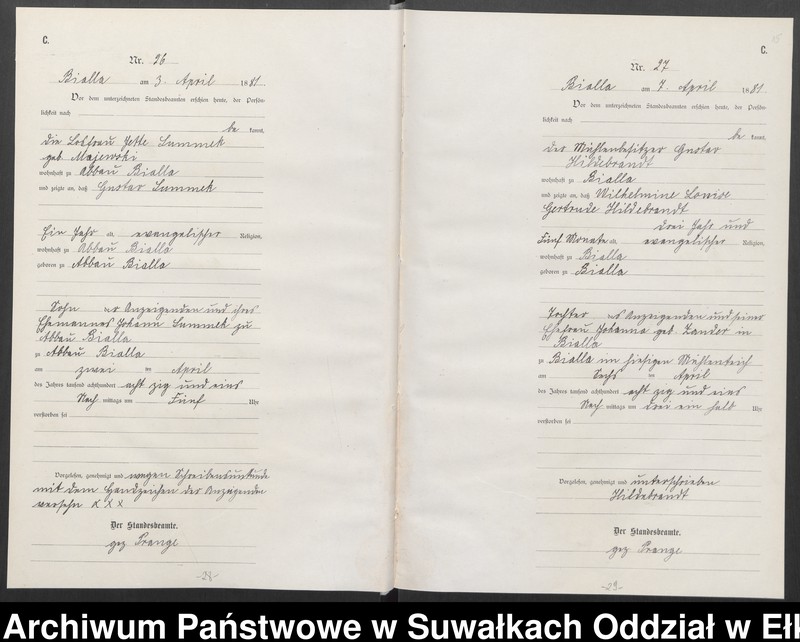 C.
Nr. 26
Bialla am 3. April 1881
Vor dem unterzeichneten Standesbeamten erschien heute, der Persön-
lichkeit nach
be kannt,
die Losfrau Jette Lummek
geb. Majewski
wohnhaft zu Abbau Bialla
und zeigte an, daß Gustav Lummek
Ein Jahr alt, evangelischer Religion,
wohnhaft zu Abbau Bialla
geboren zu Abbau Bialla
Sohn der Anzeigenden und ihres
Ehemannes Johann Lummek zu
Abbau Bialla
zu Abbau Bialla
am zwei ten April
des Jahres tausend achthundert acht zig und eins
Nach mittags um Fünf Uhr
verstorben sei
Vorgelesen, genehmigt und wegen Schreibensunkunde
mit dem Handzeichen der Anzeigenden
versehn X X X
Der Standesbeamte.
gez Prange
-28-
C.
Nr. 27
Bialla am 7. April 1881
Vor dem unterzeichneten Standesbeamten erschien heute, der Persön-
lichkeit nach
be kannt,
der Mühlenbesitzer Gustav
Hildebrandt
wohnhaft zu Bialla
und zeigte an, daß Wilhelmine Louise
Gertrude Hildebrandt
drei Jahr und
Fünf Monate alt, evangelischer Religion,
wohnhaft zu Bialla
geboren zu Bialla
Tochter des Anzeigenden und seiner
Ehefrau Johanna geb. Zander in
Bialla
zu Bialla im hiesigen Mühlenteich
am Sechs ten April
des Jahres tausend achthundert acht zig und eins
Nach mittags um drei ein halb Uhr
verstorben sei
Vorgelesen, genehmigt und unterschrieben
Hildebrandt
Der Standesbeamte.
gez Prange
-29-
Archiwum Państwowe w Suwałkach Oddział w Eł